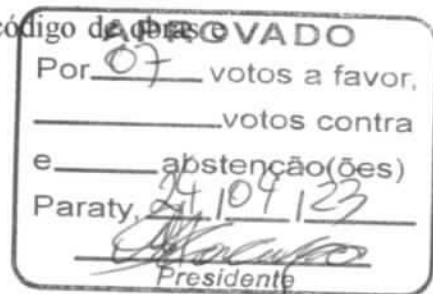 código de obras e
APROVADO
Por 07 votos a favor,
votos contra
e abstenção(ões)
Paraty, 24/04/23
Presidente